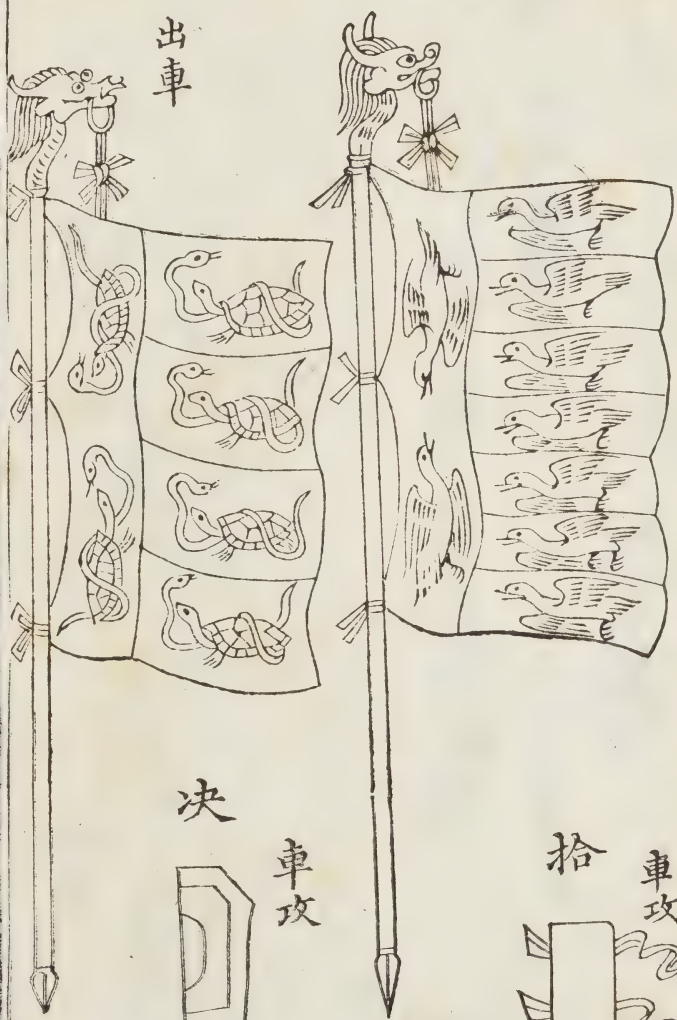 出車
車攻
拾
車攻
决